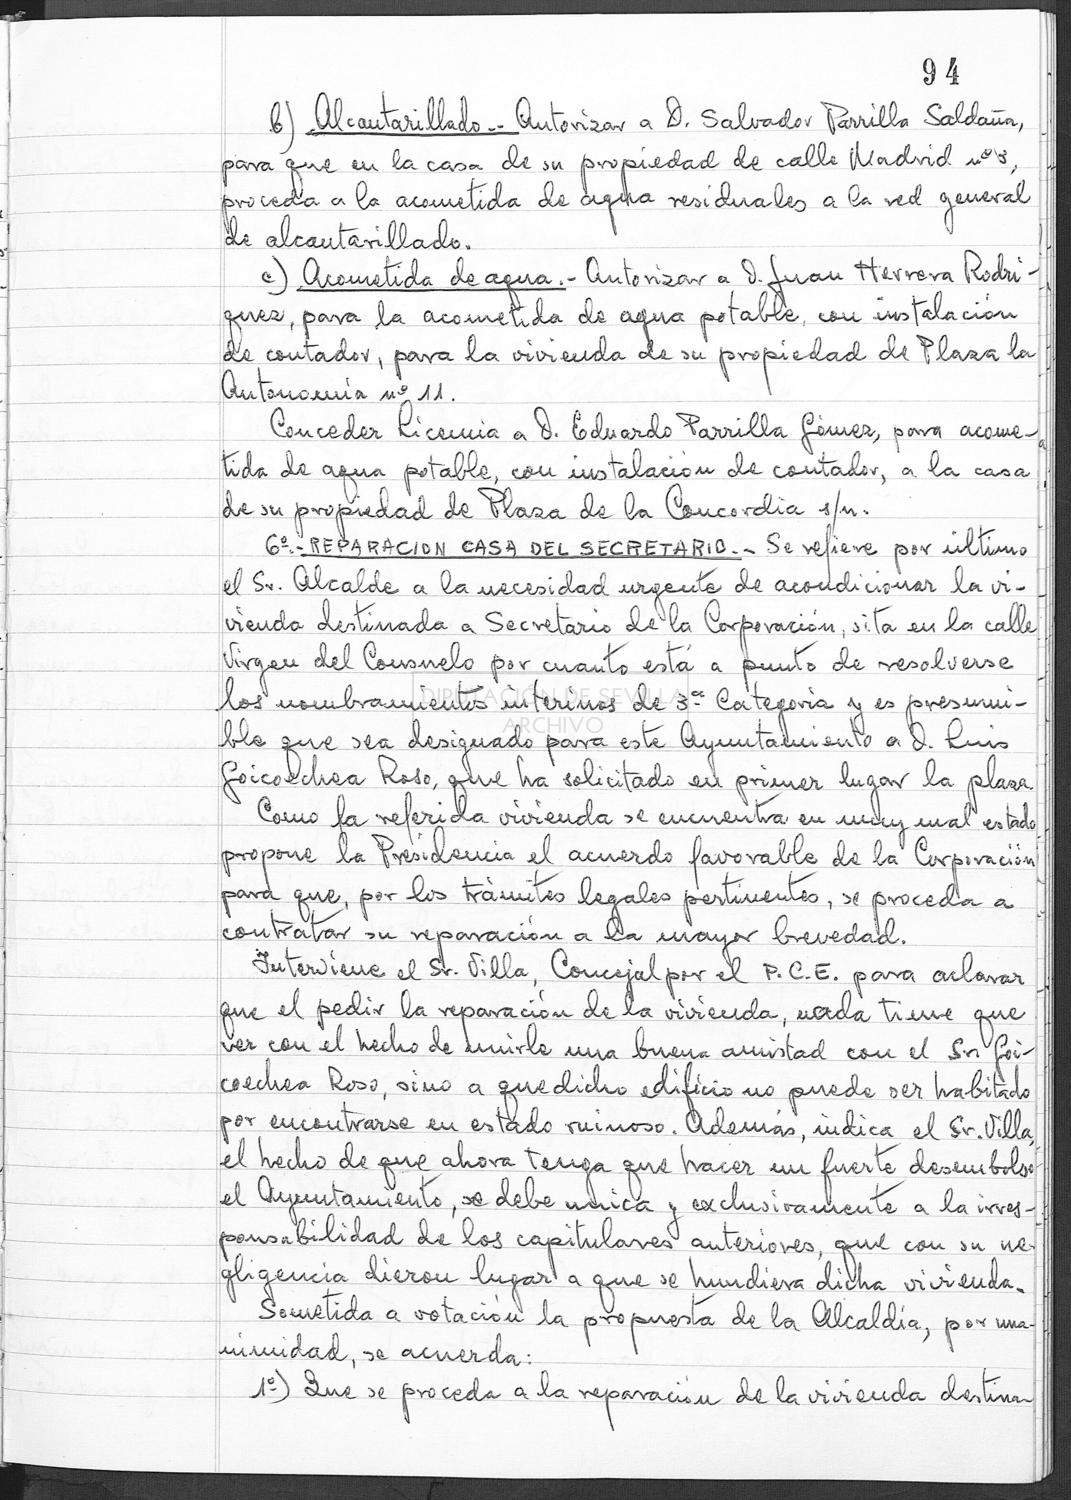 94
b) Alcantarillado.- Autorizar a D. Salvador Parrilla Saldaña,
para que en la casa de su propiedad de calle Madrid nº 3,
proceda a la acometida de agua residuales a la red general
de alcantarillado.
c) Acometida de agua.- Autorizar a D. Juan Herrera Rodri-
guez, para la acometida de agua potable, con instalación
de contador, para la vivienda de su propiedad de Plaza la
Autonomía nº 11.
Conceder Licencia a D. Eduardo Parrilla Gómez, para acome-
tida de agua potable, con instalación de contador, a la casa
de su propiedad de Plaza de la Concordia s/n.
6º.- REPARACION CASA DEL SECRETARIO.- Se refiere por último
el Sr. Alcalde a la necesidad urgente de acondicionar la vi-
vienda destinada a Secretario de la Corporación, sita en la calle
Virgen del Consuelo por cuanto está a punto de resolverse
los nombramientos interinos de 3ª Categoria y es presumi-
ble que sea designado para este Ayuntamiento a D. Luis
Goicoechea Roso, que ha solicitado en primer lugar la plaza
Como la referida vivienda se encuentra en muy mal estado
propone la Presidencia el acuerdo favorable de la Corporación
para que, por los trámites legales pertinentes, se proceda a
contratar su reparación a la mayor brevedad.
Interviene el Sr. Villa, Concejal por el P.C.E. para aclarar
que el pedir la reparación de la vivienda, nada tiene que
ver con el hecho de unirle una buena amistad con el Sr. Goi-
coechea Roso, sino a que dicho edificio no puede ser habitado
por encontrarse en estado ruinoso. Además, indica el Sr. Villa,
el hecho de que ahora tenga que hacer un fuerte desembolso
el Ayuntamiento, se debe unica y exclusivamente a la irres-
ponsabilidad de los capitulares anteriores, que con su ne-
gligencia dieron lugar a que se hundiera dicha vivienda.
Sometida a votación la propuesta de la Alcaldía, por una-
nimidad, se acuerda:
1º) Que se proceda a la reparación de la vivienda destina-
DIPUTACIÓN DE SEVILLA
ARCHIVO